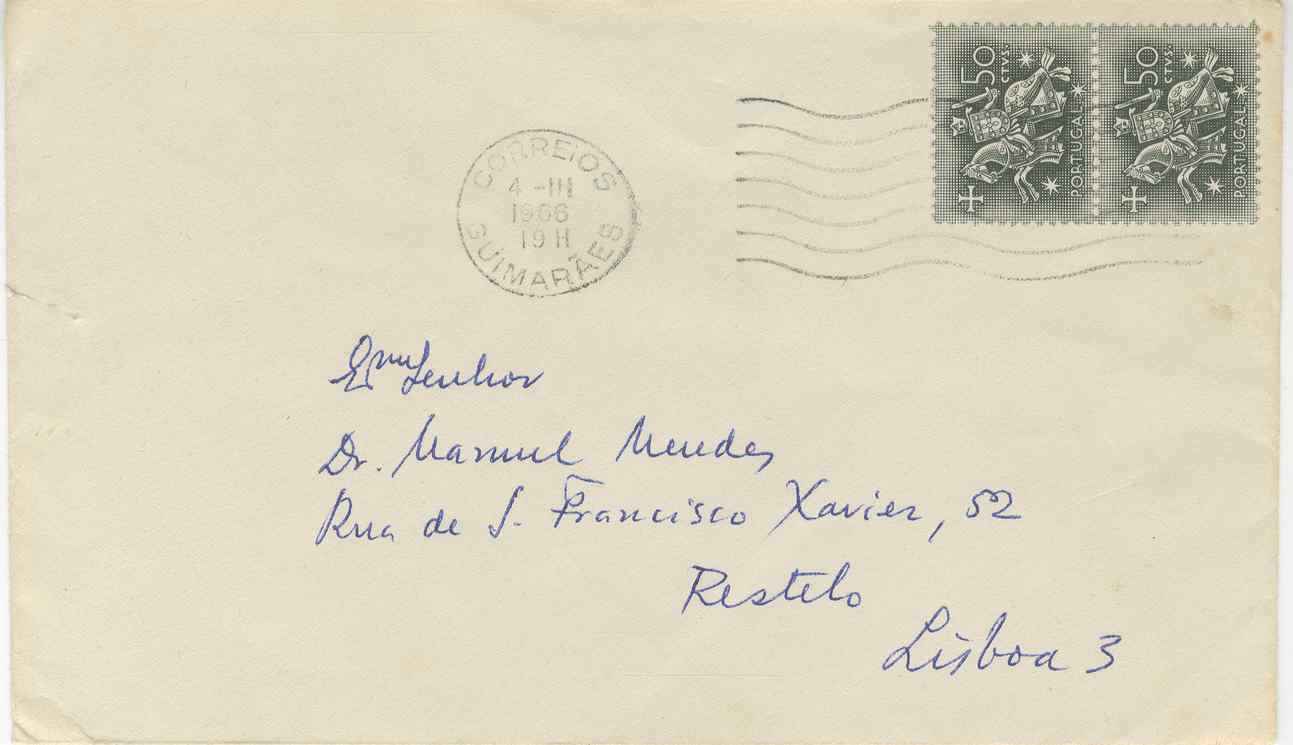 CORREIOS
4 -III
1966
19 H
GUIMARÃES
50 CTVS. PORTUGAL
50 CTVS. PORTUGAL
Exmo Senhor
Dr. Manuel Mendes
Rua de S. Francisco Xavier, 52
Restelo
Lisboa 3